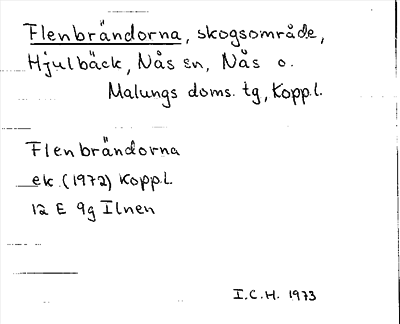 Flenbrändorna, skogsområde,
Hjulbäck, Nås sn, Nås o.
Malungs doms. tg, Kopp.l.
Flenbrändorna
ek. (1972) Kopp.l.
12 E 9g Ilnen
I.C.H. 1973